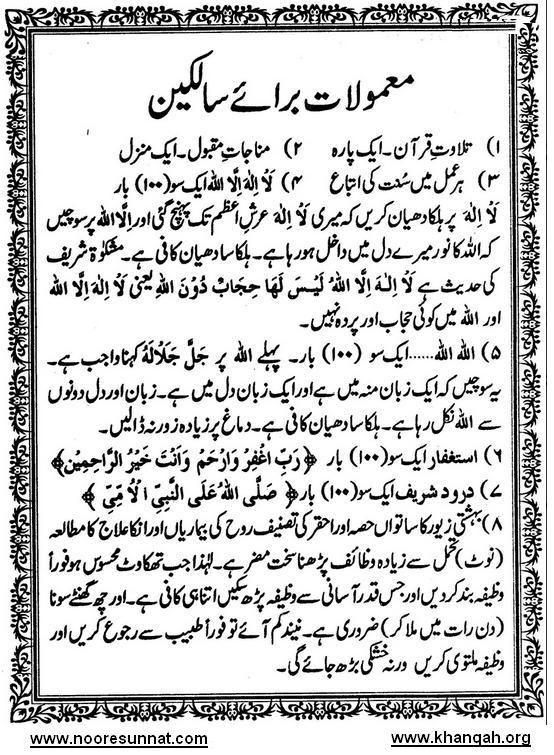 معمولات برائے سالکین
۱) تلاوتِ قرآن۔ ایک پارہ ۲) مناجاتِ مقبول۔ ایک منزل
۳) ہر عمل میں سُنت کی اتباع ۴) لَا اِلٰهَ اِلَّا اللہ ایک سو (۱۰۰) بار
لَا اِلٰهَ پر ہلکا دھیان کریں کہ میری لَا اِلٰهَ عرشِ اعظم تک پہنچ گئی اور اِلَّا اللہ پر سوچیں
کہ اللہ کا نور میرے دل میں داخل ہو رہا ہے۔ ہلکا سا دھیان کافی ہے۔ مشکوٰۃ شریف
کی حدیث ہے لَا اِلٰـهَ اِلَّا اللہُ لَیْسَ لَهَا حِجَابٌ دُوْنَ اللہِ یعنی لَا اِلٰهَ اِلَّا اللہ
اور اللہ میں کوئی حجاب اور پردہ نہیں۔
۵) اللہ اللہ......ایک سو (۱۰۰) بار۔ پہلے اللہ پر جَلَّ جَلَالُهٗ کہنا واجب ہے۔
یہ سوچیں کہ ایک زبان منہ میں ہے اور ایک زبان دل میں ہے۔ زبان اور دل دونوں
سے اللہ نکل رہا ہے۔ ہلکا سا دھیان کافی ہے۔ دماغ پر زیادہ زور نہ ڈالیں۔
۶) استغفار ایک سو (۱۰۰) بار ﴿رَبِّ اغْفِرْ وَارْحَمْ وَاَنْتَ خَیْرُ الرَّاحِمِیْنَ﴾
۷) درود شریف ایک سو (۱۰۰) بار ﴿ صَلَّی اللہُ عَلَی النَّبِیِّ الْاُمِّیِّ ﴾
۸) بہشتی زیور کا ساتواں حصہ اور احقر کی تصنیف روح کی بیماریاں اور انکا علاج کا مطالعہ
(نوٹ) تحمل سے زیادہ وظائف پڑھنا سخت مضر ہے۔ لہٰذا جب تھکاوٹ محسوس ہو فوراً
وظیفہ بند کر دیں اور جس قدر آسانی سے وظیفہ پڑھ سکیں اتنا ہی کافی ہے۔ اور چھ گھنٹے سونا
(دن رات میں ملا کر) ضروری ہے۔ نیند کم آئے تو فوراً طبیب سے رجوع کریں اور
وظیفہ ملتوی کریں ورنہ خشکی بڑھ جائے گی۔
www.nooresunnat.com www.khanqah.org